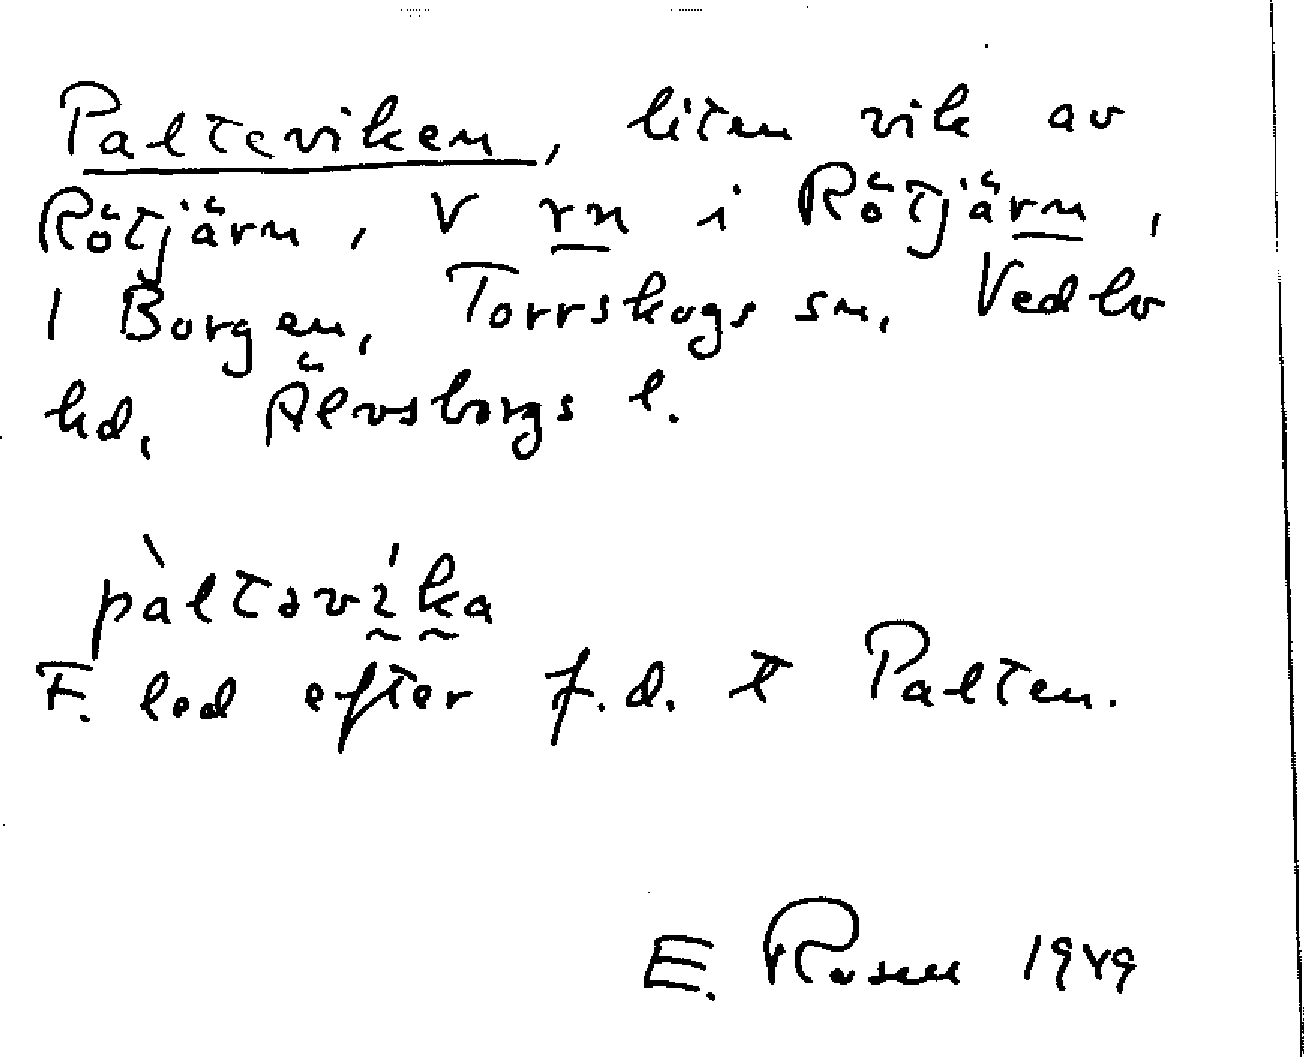 Palteviken, liten vik av
Rötjärn, V rn i Rötjärn,
1 Borgen, Torrskogs sn, Vedbo
hd, Älvsborgs l.
pàltəvíka
F. led efter f.d. t Palten.
E. Rosen 1949